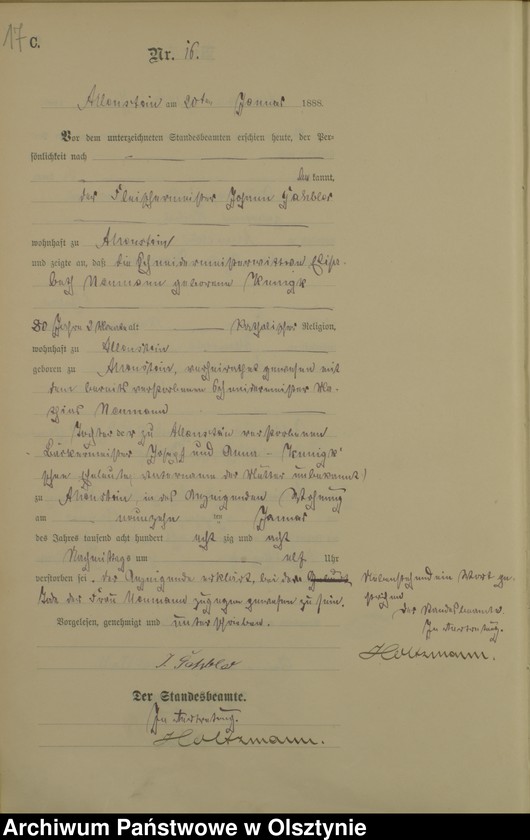 17 C.
Nr. 16.
Allenstein am 20ten Januar 1888.
Vor dem unterzeichneten Standesbeamten erschien heute, der Per-
sönlichkeit nach
be kannt,
der Fleischermeister Johann
wohnhaft zu Allenstein
und zeigte an, daß die Schneidermeisterwittwe Elisa-
beth Neumann geborene
80 Jahre 2 Monate alt Katholischer Religion,
wohnhaft zu Allenstein
geboren zu Allenstein, verheirathet gewesen mit
dem bereits verstorbenen Schneidermeister Ma-
thias Neumann
Tochter der zu Allenstein verstorbenen
Bäckermeister Joseph und Anna
schen Eheleute, (Vorname der Mutter unbekannt)
zu Allenstein, in des Anzeigenden Wohnung
am neunzehn ten Januar
des Jahres tausend acht hundert acht zig und acht
Nachmittags um elf Uhr
verstorben sei. Der Anzeigende erklärt, bei dem
Tode der Frau Neumann zugegen gewesen zu sein.
Vorgelesen, genehmigt und unterschrieben.
Der Standesbeamte.
In Vertretung.
Holtzmann.
Nebenstehend ein Wort ge-
strichen
Der Standesbeamte.
In Vertretung.
Holtzmann.
Archiwum Państwowe w Olsztynie